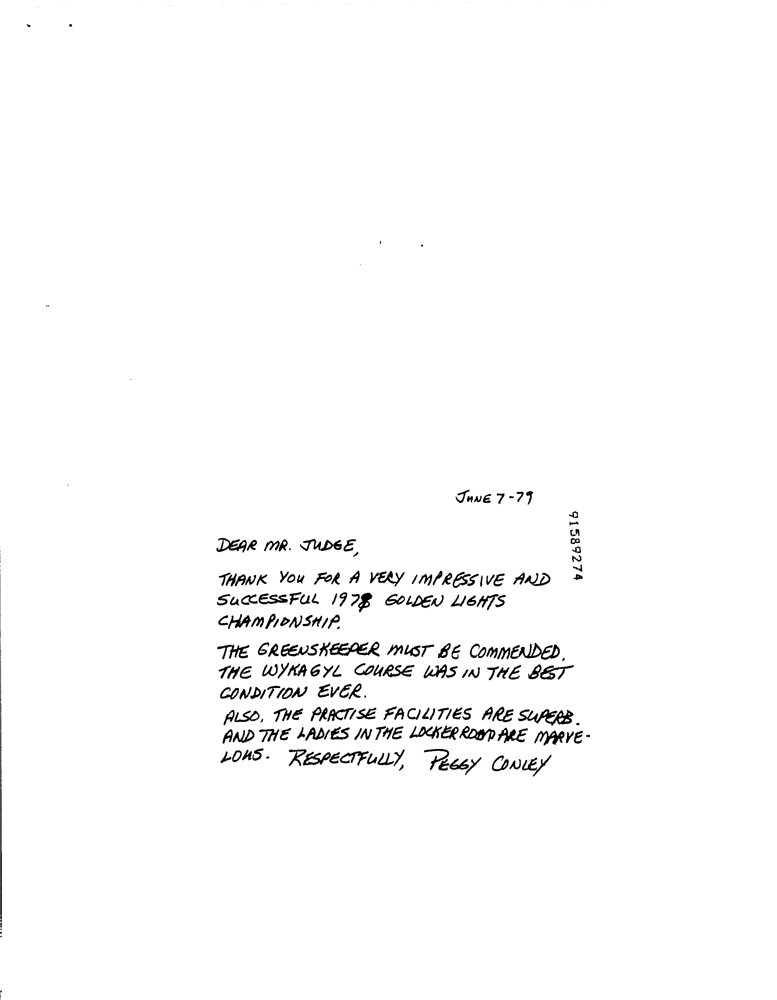 JUNE 7-79
91589274
DEAR MR. JUDGE,
THANK YOU FOR A VERY IMPRESSIVE AND
SUCCESSFUL 1978 GOLDEN LIGHTS
CHAMPIONSHIP.
THE GREENSKEEPER MUST BE COMMENDED.
THE WYKAGYL COURSE WAS IN THE BEST
CONDITION EVER.
ALSO, THE PRACTISE FACILITIES ARE SUPERB.
AND THE LADIES IN THE LOCKER ROOM ARE MARVE-
LOUS. RESPECTFULLY, PEGGY CONLEY